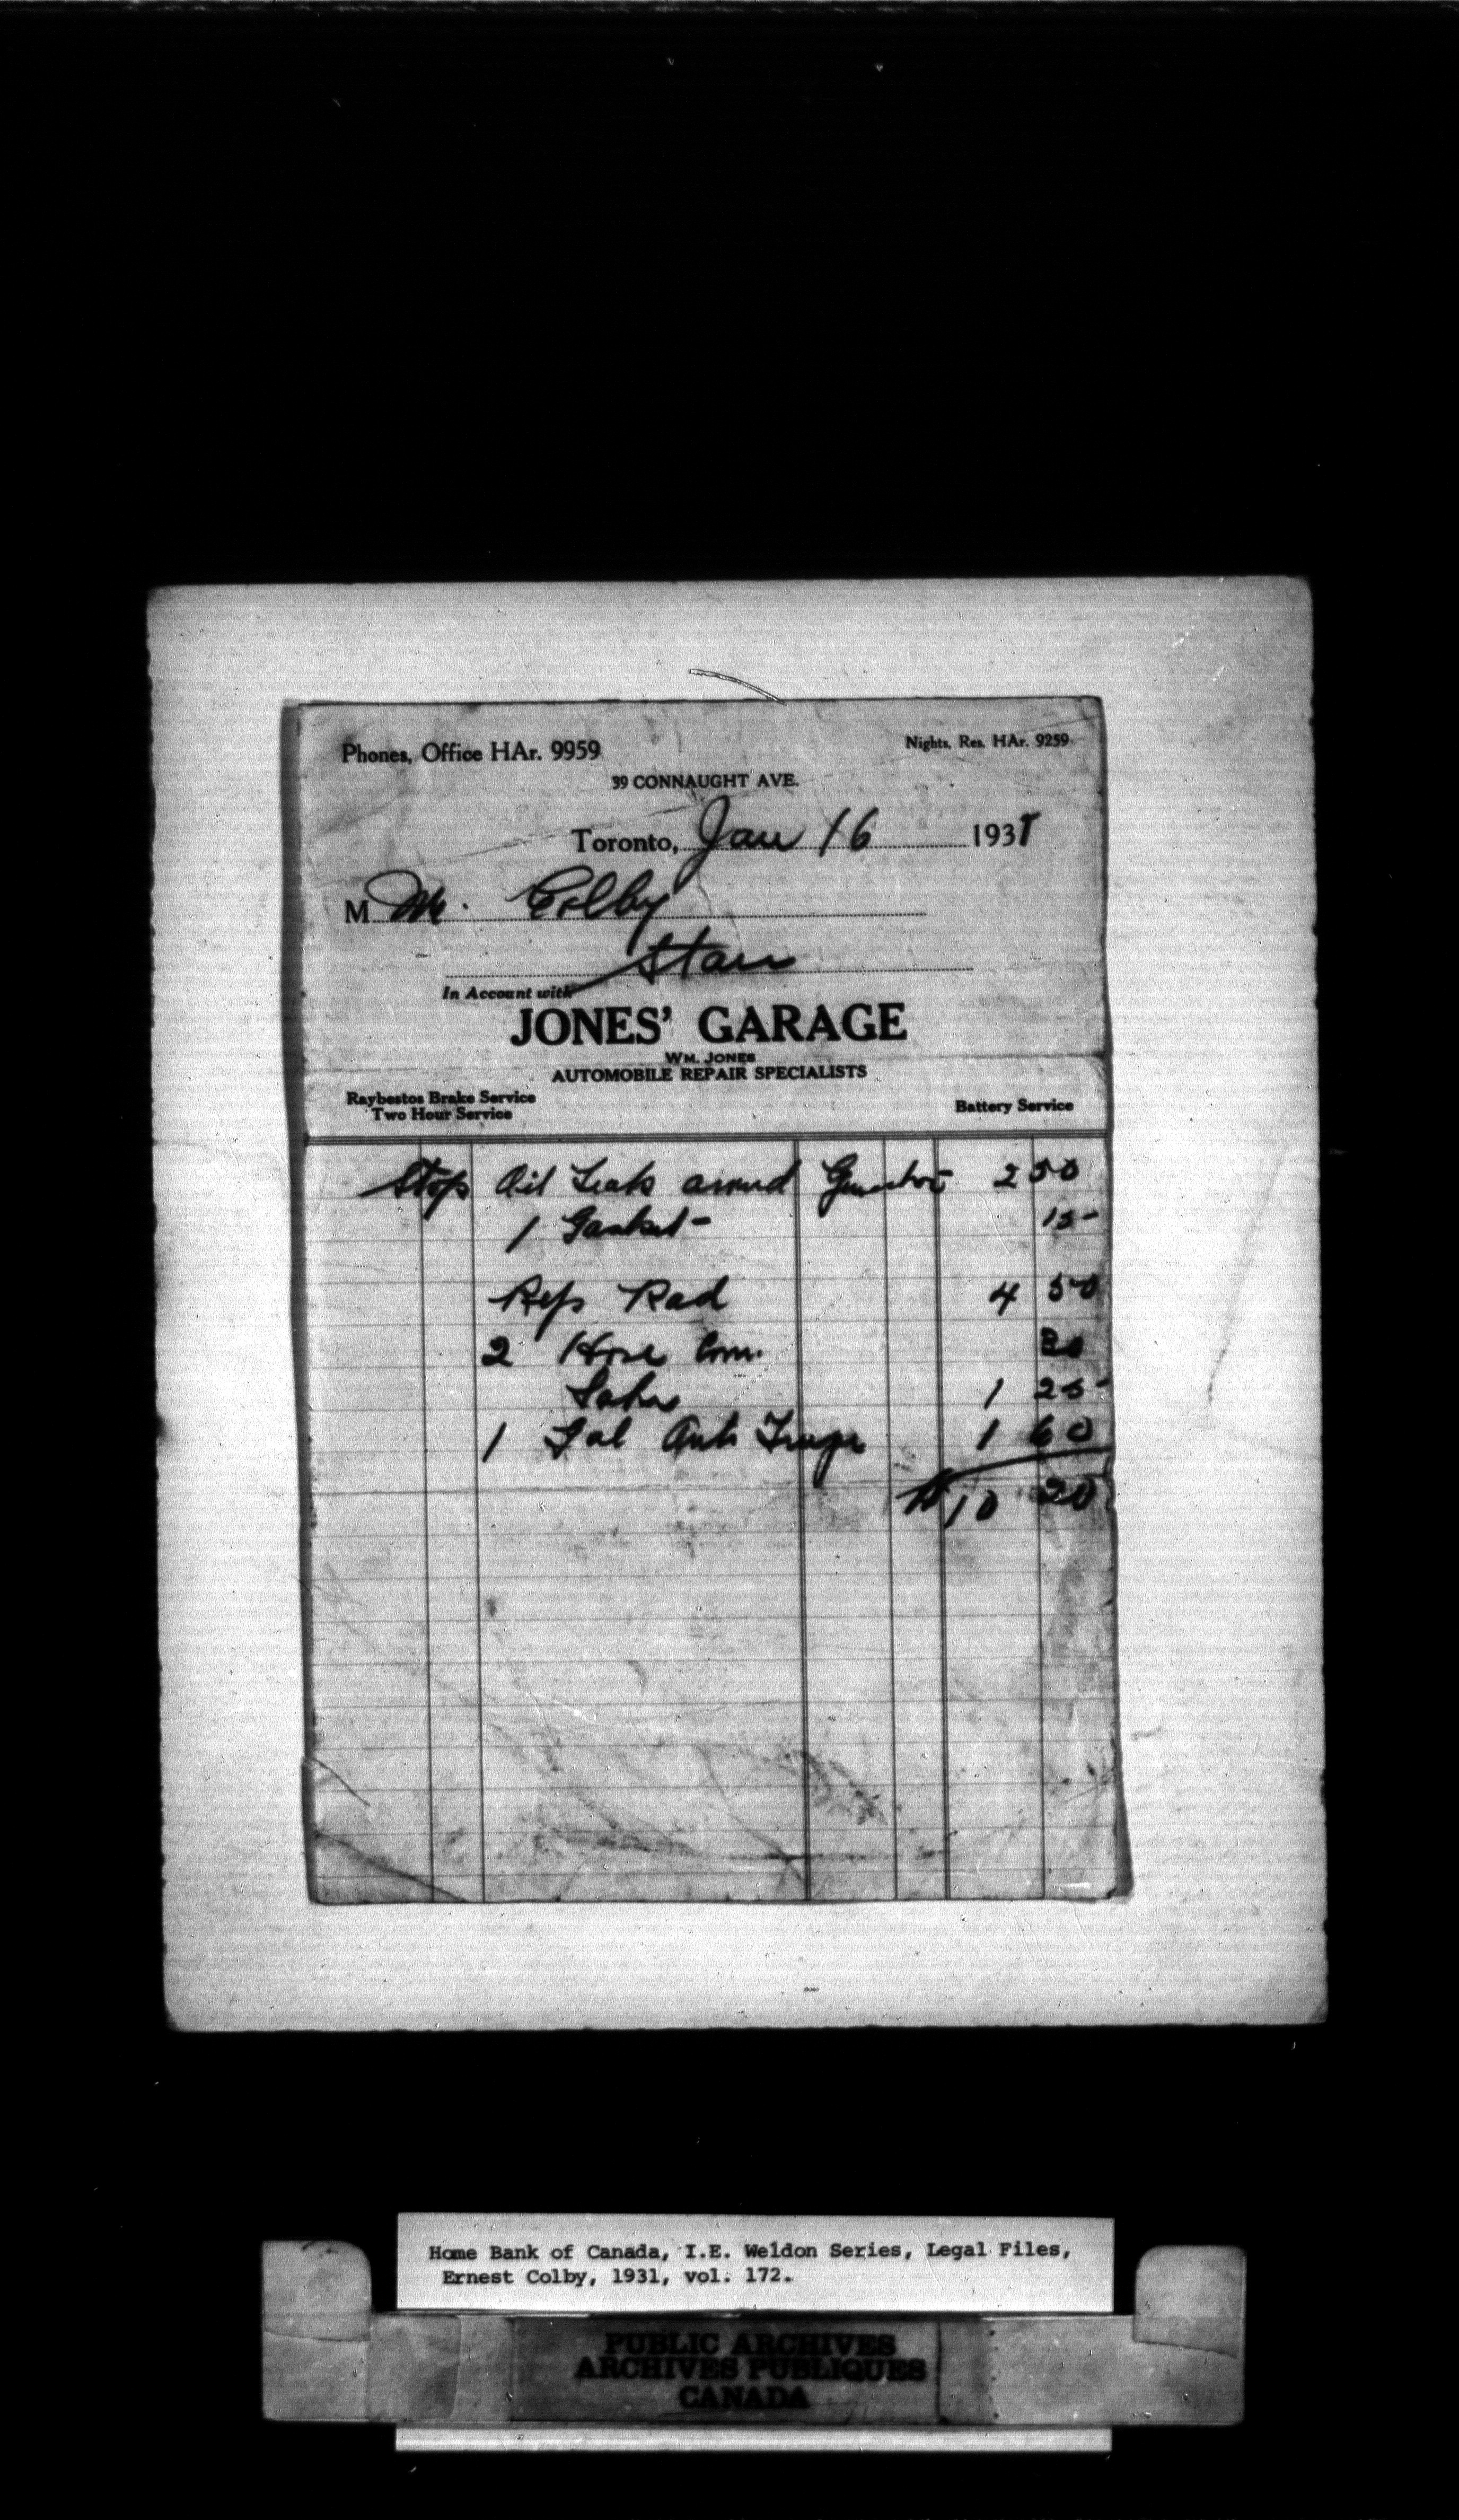 Phones, Office HAr. 9959
Nights, Res. HAr. 9259
39 CONNAUGHT AVE.
Toronto, Jan 16 1931
M Mr. Colby
Starr
In Account with
JONES' GARAGE
WM. JONES
AUTOMOBILE REPAIR SPECIALISTS
Raybestos Brake Service
Two Hour Service
Battery Service
Stop Oil Leak around Generator 2 50
1 Gasket 15
Rep Rad 4 50
2 Hose Conn. 20
Labor 1 25
1 Gal Anti Freeze 1 60
$10 20
Home Bank of Canada, I.E. Weldon Series, Legal Files,
Ernest Colby, 1931, vol. 172.
PUBLIC ARCHIVES
ARCHIVES PUBLIQUES
CANADA